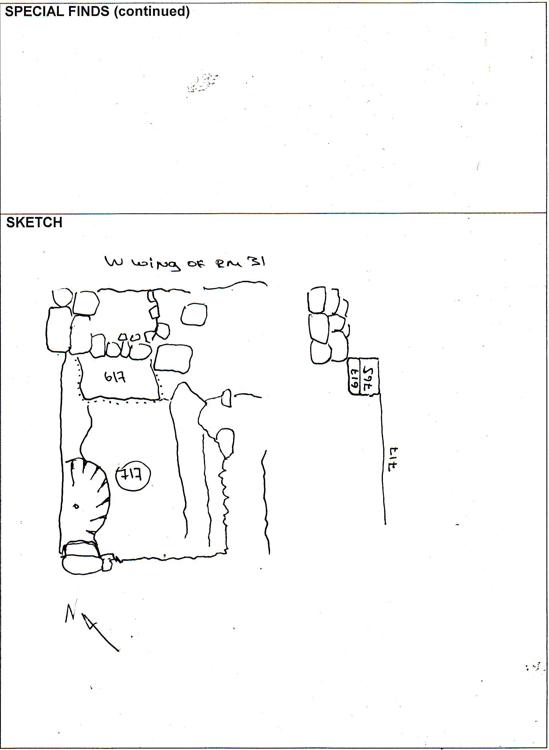 SPECIAL FINDS (continued)
SKETCH
W WING OF RM 31
617
717
717
N